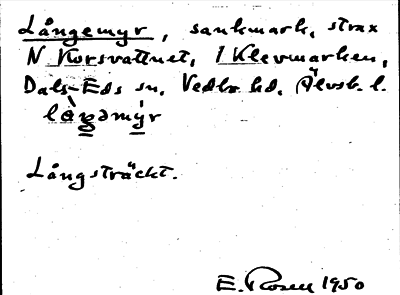 Långemyr, sankmark, strax
N Korsvattnet, i Klevmarken,
Dals-Eds sn, Vedbo hd, Älvsb. l.
lå̀ŋəmýr
Långsträckt.
E. Rosell 1950